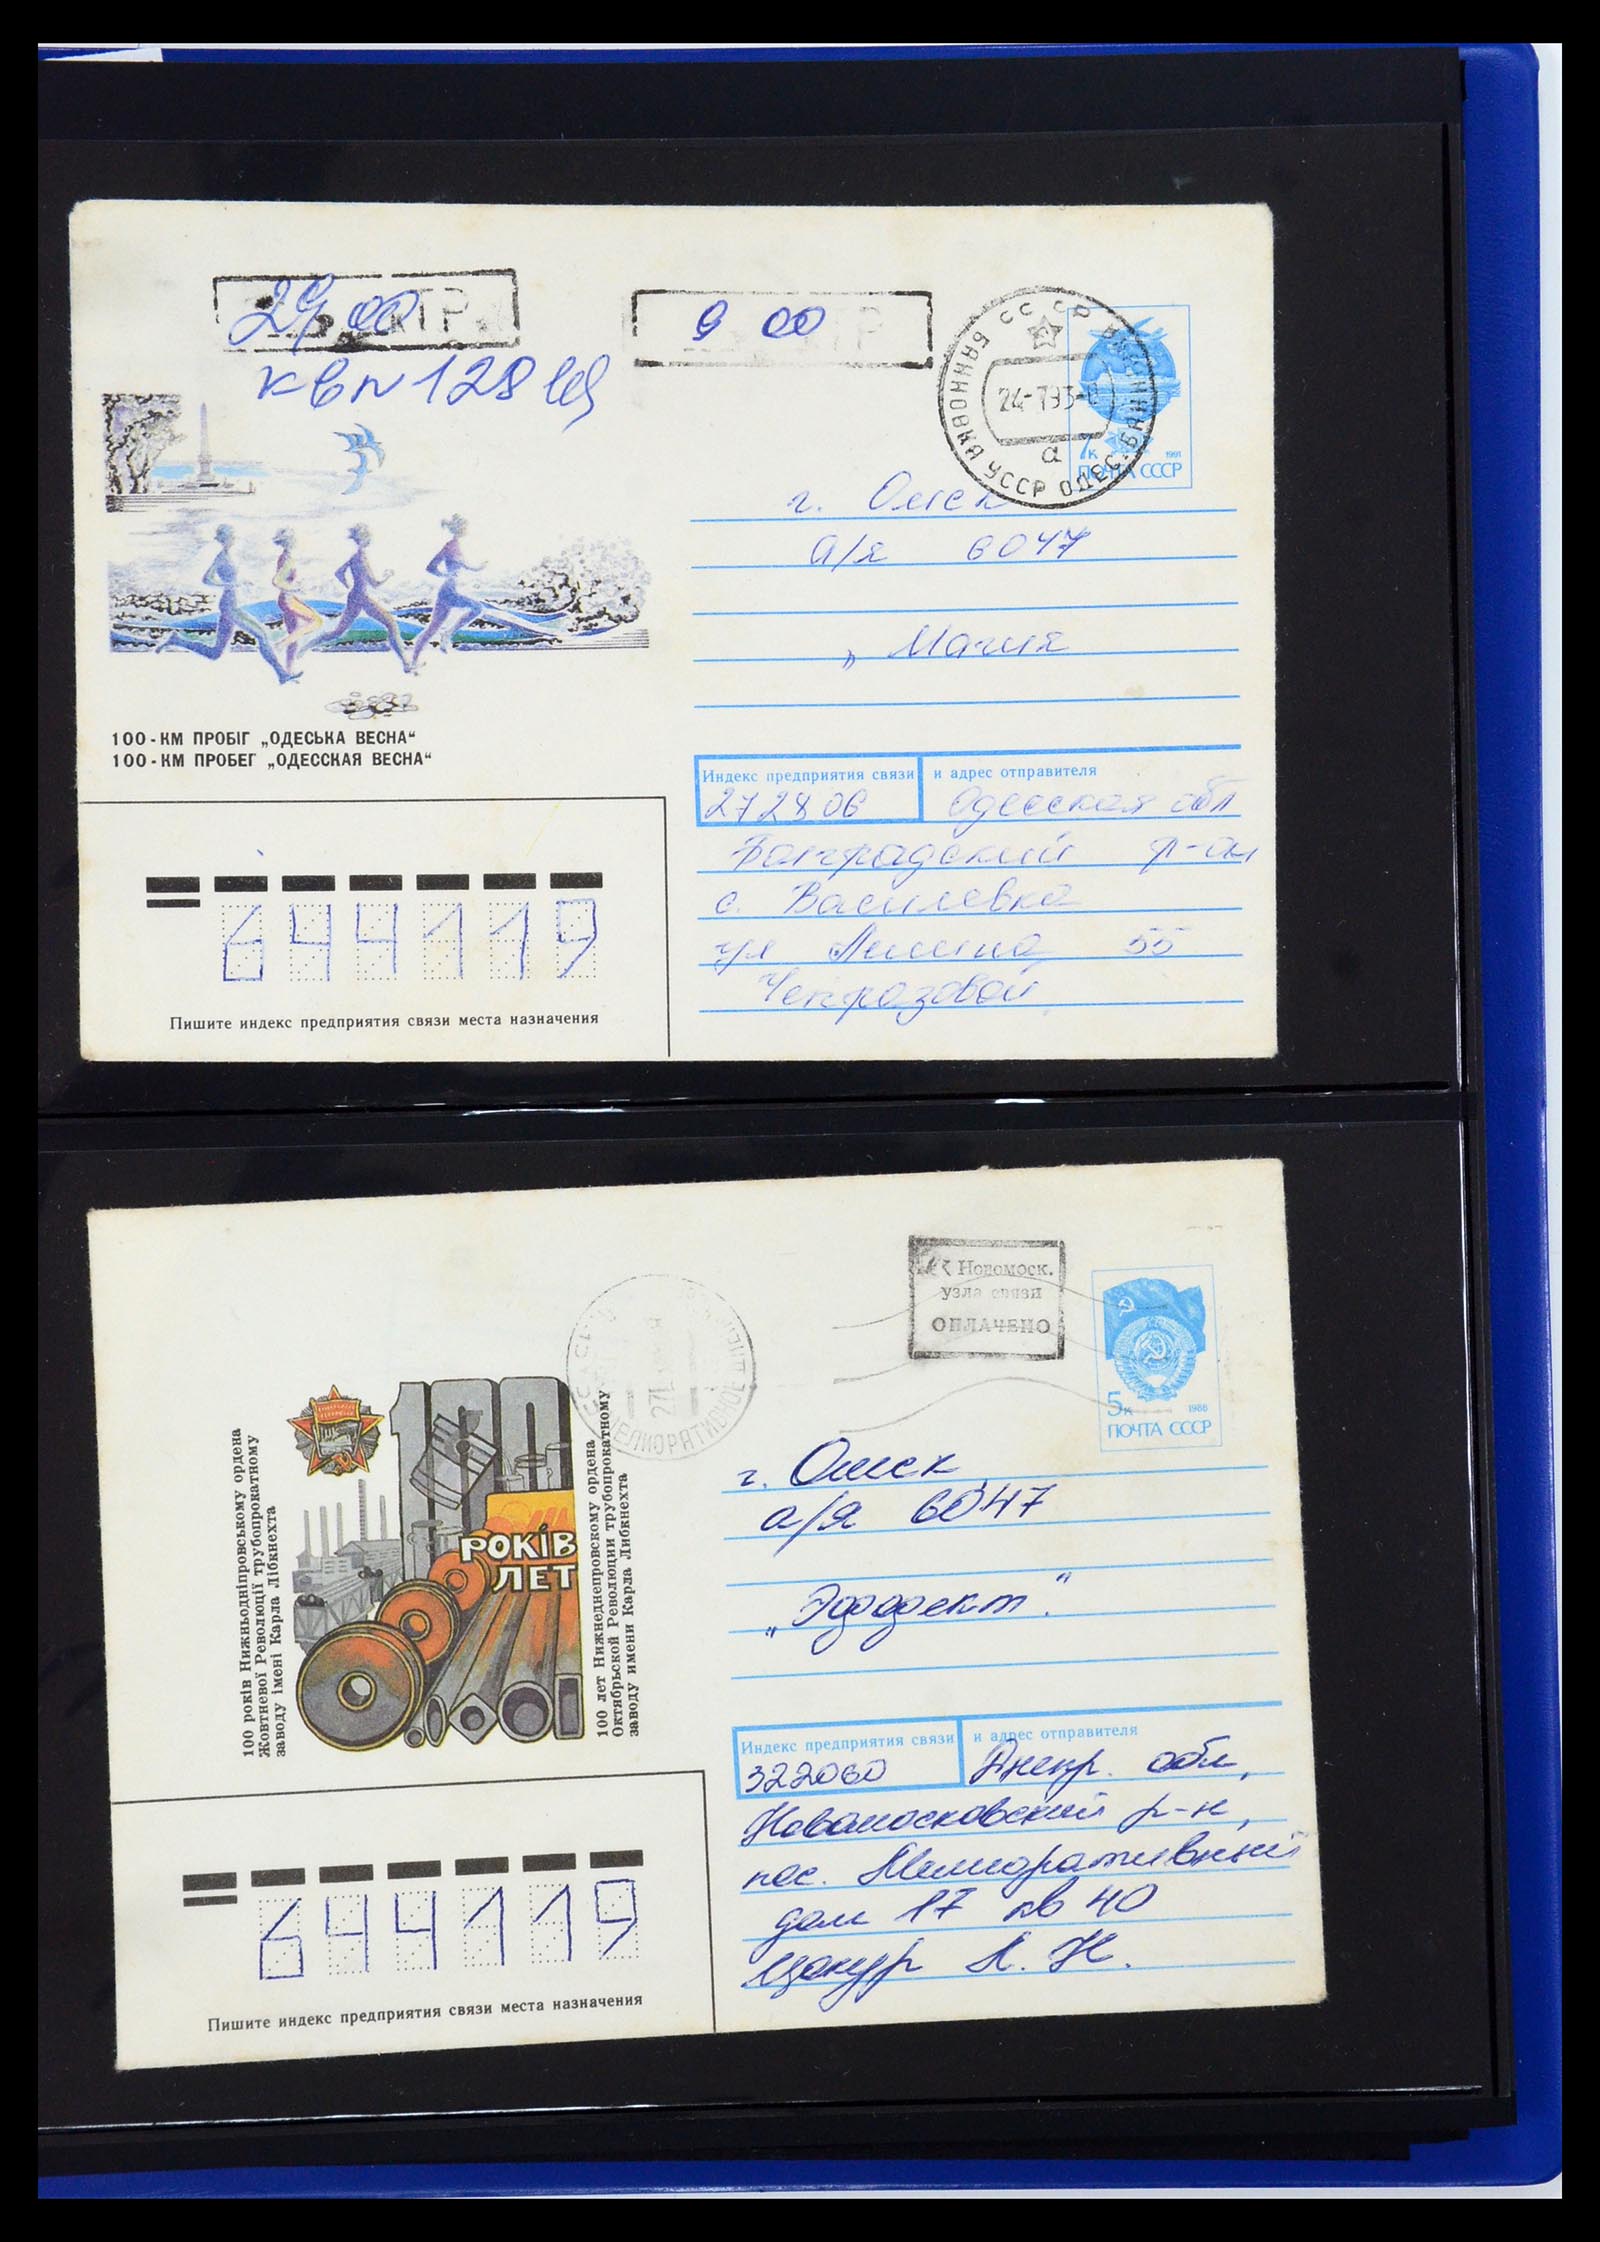 29 00
9 00
24-7 93
а
7к
1991
ПОЧТА СССР
г. Омск
а/я 6047
„ Магия
100-КМ ПРОБІГ „ОДЕСЬКА ВЕСНА“
100-КМ ПРОБЕГ „ОДЕССКАЯ ВЕСНА“
Индекс предприятия связи
и адрес отправителя
272806
Одесская обл
р-он
с. Василевка
ул Ленина 55
644119
Пишите индекс предприятия связи места назначения
Новомоск.
узла связи
ОПЛАЧЕНО
5к
1988
ПОЧТА СССР
100
РОКІВ
ЛЕТ
100 років Нижньодніпровському ордена
Жовтневої Революції трубопрокатному
заводу імені Карла Лібкнехта
100 лет Нижнеднепровскому ордена
Октябрьской Революции трубопрокатному
заводу имени Карла Либкнехта
г. Омск
а/я 6047
„Эдофект“.
Индекс предприятия связи
и адрес отправителя
322060
Днепр. обл,
Новомосковский р-н,
пос. Мелиоративный
дом 17 кв 40
Цокур Л. Н.
644119
Пишите индекс предприятия связи места назначения